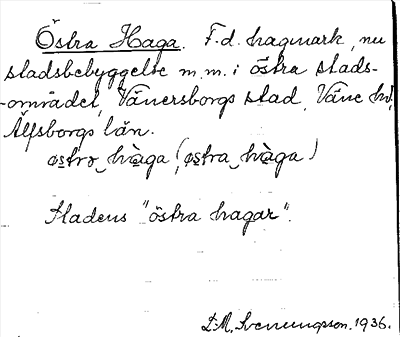 Östra Haga. F.d. hagmark, nu
stadsbebyggelse m.m. i östra stads-
-området, Vänersborgs stad, Väne hd,
Älfsborgs län.
østrə hàga (østra hàga)
Stadens "östra hagar".
1936.